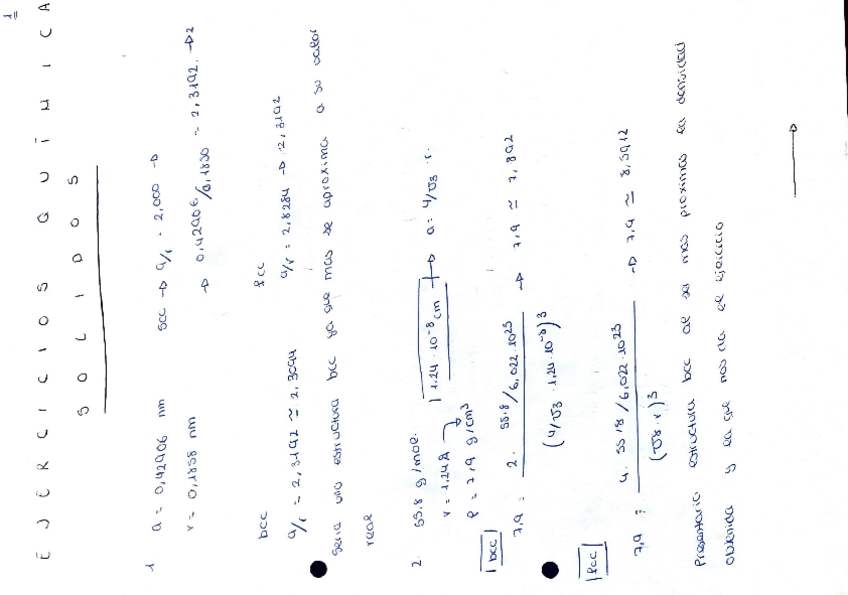 1
EJERCICIOS QUÍMICA
SOLIDOS
1 a = 0,42906 nm scc → a/r = 2,000 →
r = 0,1858 nm → 0,42906/0,1850 = 2,3192. → 2
bcc fcc
a/r = 2,3192 ≃ 2,3094 a/r = 2,8284 → 2,3192
Seria una estructura bcc ya que mas se aproxima a su valor
real
2. 55.8 g/mol.
r = 1.24Å → 1.24 · 10⁻⁸ cm → a = 4/√3 · r.
ρ = 7,9 g/cm³
bcc
7,9 = 2 · 55.8/6,022·10²³ / (4/√3 · 1.24·10⁻⁸)³ → 7,9 ≃ 7,892
fcc
7,9 = 4 · 55.8/6,022·10²³ / (√8·r)³ → 7,9 ≃ 8,5912
Presentaria estructura bcc al ser mas proximas la densidad
obtenida y la que nos da el ejercicio
→